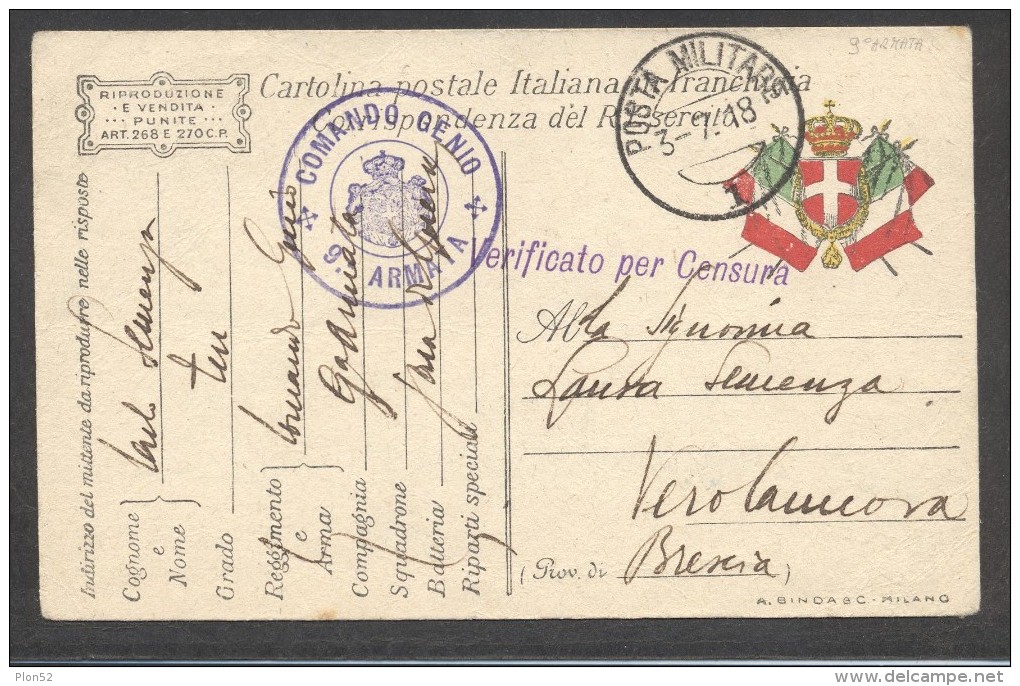 9ª ARMATA
RIPRODUZIONE
E VENDITA
PUNITE
ART. 268 E 270 C.P.
Cartolina postale Italiana in franchigia
Corrispondenza del R. Esercito
POSTA MILITARE
3-7.18
COMANDO GENIO
9. ARMATA
Verificato per Censura
Alla Signorina
Laura Semenza
Verolanuova
(Prov. di Brescia)
A. BINDA & C - MILANO
Indirizzo del mittente da riprodurre nelle risposte
Cognome e Nome Carlo Semenza
Grado Ten
Reggimento e Arma Comando Genio
Compagnia 9a Armata
Squadrone
Batteria Zona di Guerra
Riparti speciali
Plon52
www.delcampe.net